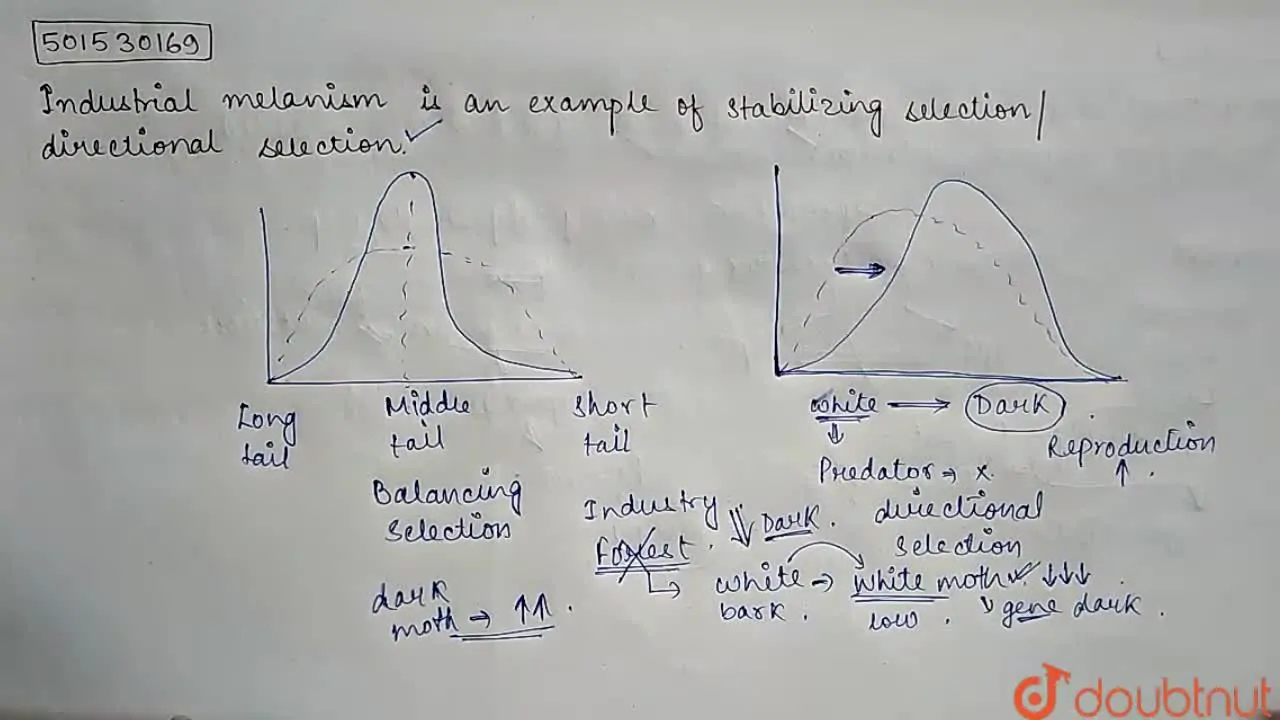 501530169
Industrial melanism is an example of stabilizing selection/
directional selection.
Long
tail
Middle
tail
Short
tail
Balancing
Selection
White → Dark
Predator → x.
Reproduction
↑
directional
selection
Industry
Forest.
Dark.
White → White moth ↓↓↓
bark.
low.
gene dark.
dark
moth → ↑↑.
doubtnut